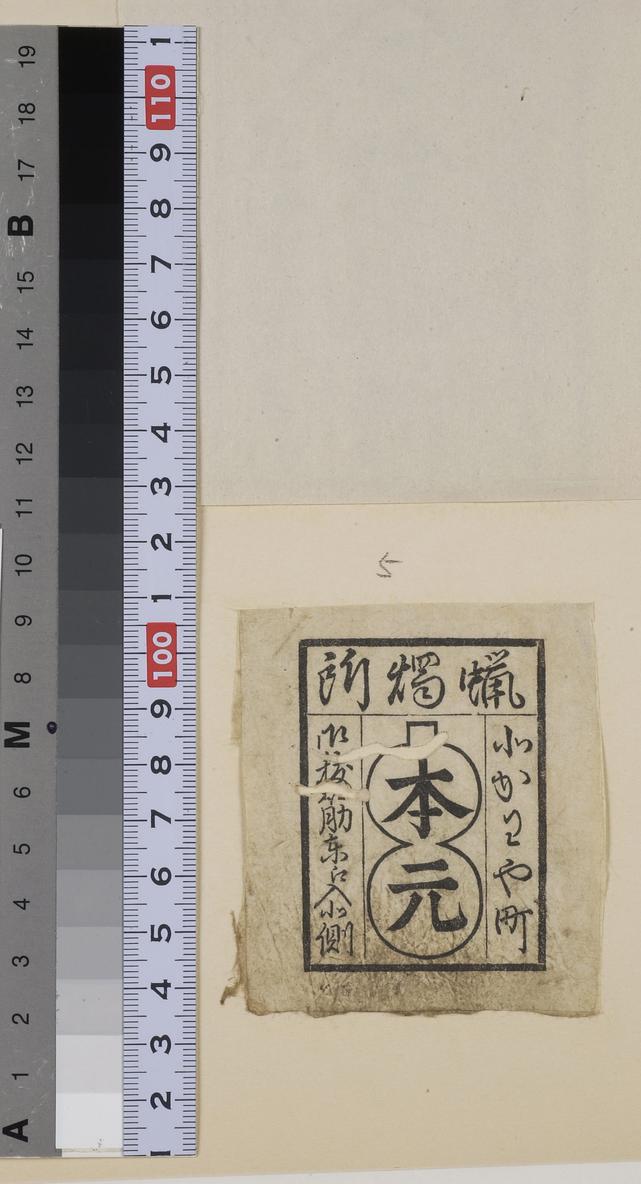 19 18 17 B 15 14 13 12 11 10 9 8 M 6 5 4 3 2 1 A
1 110 9 8 7 6 5 4 3 2 1 100 9 8 7 6 5 4 3 2 1
5
蝋燭所
北かわや町
本元
御祓筋東江入北側